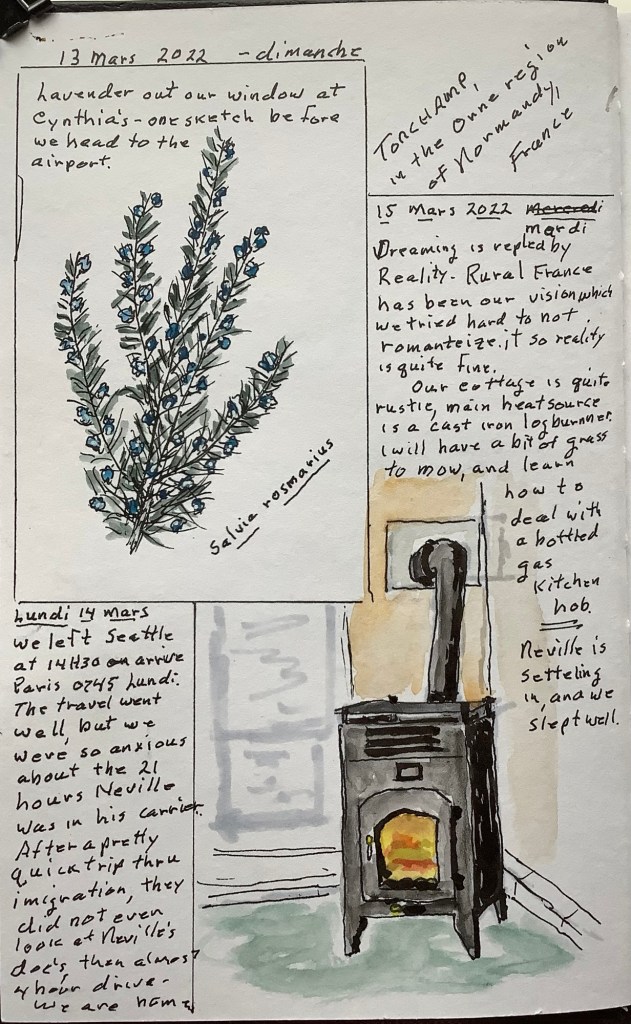 13 Mars 2022 - dimanche
Lavender out our window at
Cynthia's - one sketch before
we head to the
airport.
Salvia rosmarius
TORCHAMP,
in the Orne region
of Normandy,
France
Lundi 14 mars
we left Seattle
at 14H30 on arrive
Paris 0745 Lundi.
The travel went
well, but we
were so anxious
about the 21
hours Neville
was in his carrier.
After a pretty
quick trip thru
imigration, they
did not even
look at Neville's
doc's, then almost
4 hour drive -
we are home
15 Mars 2022 Mercredi
mardi
Dreaming is repled by
Reality - Rural France
has been our vision which
we tried hard to not
romanteize it so reality
is quite fine.
Our cottage is quite
rustic, main heat source
is a cast iron logburnner.
I will have a bit of grass
to mow, and learn
how to
deal with
a bottled
gas
kitchen
hob.
Neville is
setteling
in, and we
slept well.